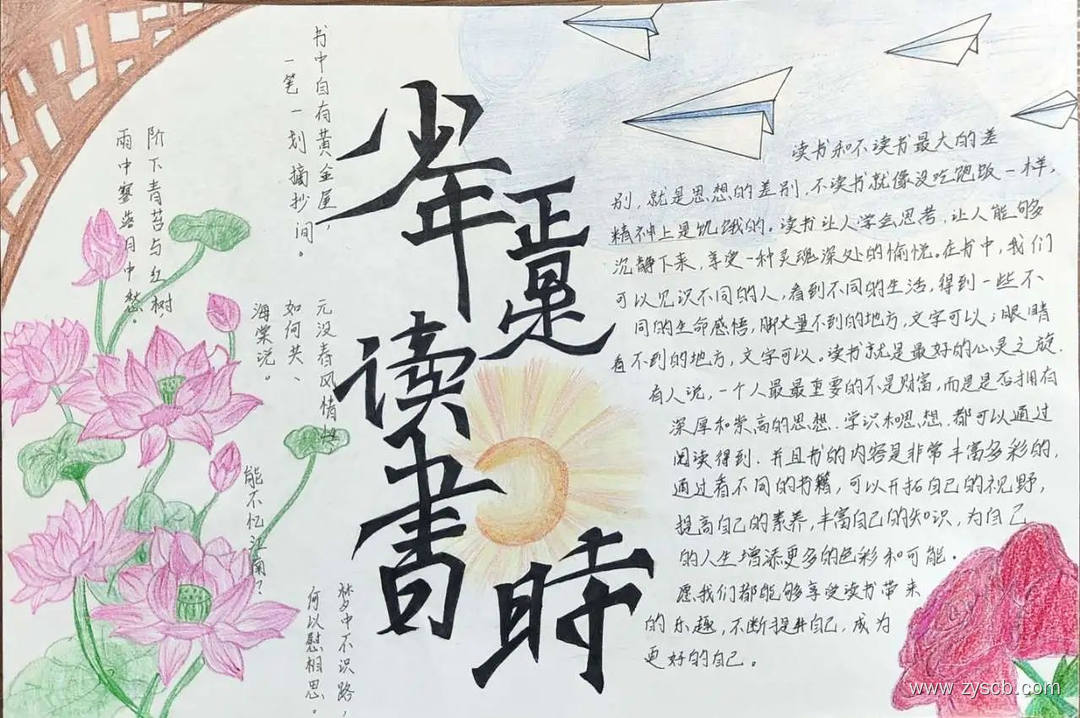 少年
正是
读书
時
书中自有黄金屋，
一笔一划摘抄间。
阶下青苔与红树，
雨中寥落月中愁。
元没春风情性，
如何共、
海棠说。
能不忆江南？
梦中不识路，
何以慰相思。
读书和不读书最大的差
别，就是思想的差别，不读书就像没吃饱饭一样，
精神上是饥饿的。读书让人学会思考，让人能够
沉静下来，享受一种灵魂深处的愉悦。在书中，我们
可以见识不同的人，看到不同的生活，得到一些不
同的生命感悟，脚丈量不到的地方，文字可以；眼睛
看不到的地方，文字可以。读书就是最好的心灵之旅.
有人说，一个人最最重要的不是财富，而是是否拥有
深厚和崇高的思想.学识和思想.都可以通过
阅读得到.并且书的内容是非常丰富多彩的，
通过看不同的书籍，可以开拓自己的视野，
提高自己的素养，丰富自己的知识，为自己
的人生增添更多的色彩和可能。
愿我们都能够享受读书带来
的乐趣，不断提升自己，成为
更好的自己。
www.zyscb.com